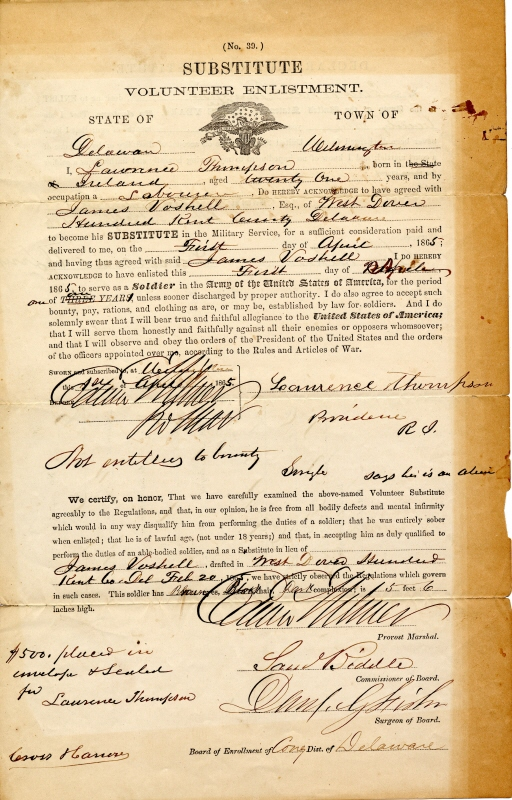 (No. 39.)
SUBSTITUTE
VOLUNTEER ENLISTMENT.
STATE OF TOWN OF
Delaware Wilmington
I, Lawrence Thompson, born in the State
Ireland, aged twenty one years, and by
occupation a Labourer, Do HEREBY ACKNOWLEDGE to have agreed with
James Voshell, Esq., of West Dover
Hundred Kent County Delaware
to become his SUBSTITUTE in the Military Service, for a sufficient consideration paid and
delivered to me, on the First day of April 1865;
and having thus agreed with said James Voshell, I DO HEREBY
ACKNOWLEDGE to have enlisted this First day of April
1865, to serve as a Soldier in the Army of the United States of America, for the period
one of THREE YEARS, unless sooner discharged by proper authority. I do also agree to accept such
bounty, pay, rations, and clothing as are, or may be, established by law for soldiers. And I do
solemnly swear that I will bear true and faithful allegiance to the United States of America;
that I will serve them honestly and faithfully against all their enemies or opposers whomsoever;
and that I will observe and obey the orders of the President of the United States and the orders
of the officers appointed over me, according to the Rules and Articles of War.
SWORN and subscribed to, at Wilmington
this 1st of April 1865
BEFORE
Lawrence Thompson
Pro Mar
Providence
R I.
Not entitled to bounty
Single says he is an alien
We certify, on honor, That we have carefully examined the above-named Volunteer Substitute
agreeably to the Regulations, and that, in our opinion, he is free from all bodily defects and mental infirmity
which would in any way disqualify him from performing the duties of a soldier; that he was entirely sober
when enlisted; that he is of lawful age, (not under 18 years;) and that, in accepting him as duly qualified to
perform the duties of an able-bodied soldier, and as a Substitute in lieu of
James Voshell, drafted in West Dover Hundred
Kent Co Del Feb 20, 1865, we have strictly observed the Regulations which govern
in such cases. This soldier has eyes, hair, Dark complexion; is 5 feet 6
inches high.
Provost Marshal.
Saml Biddle
Commissioner of Board.
$500. placed in
envelope & sealed
for
Lawrence Thompson
Surgeon of Board.
Board of Enrollment of Cong Dist. of Delaware